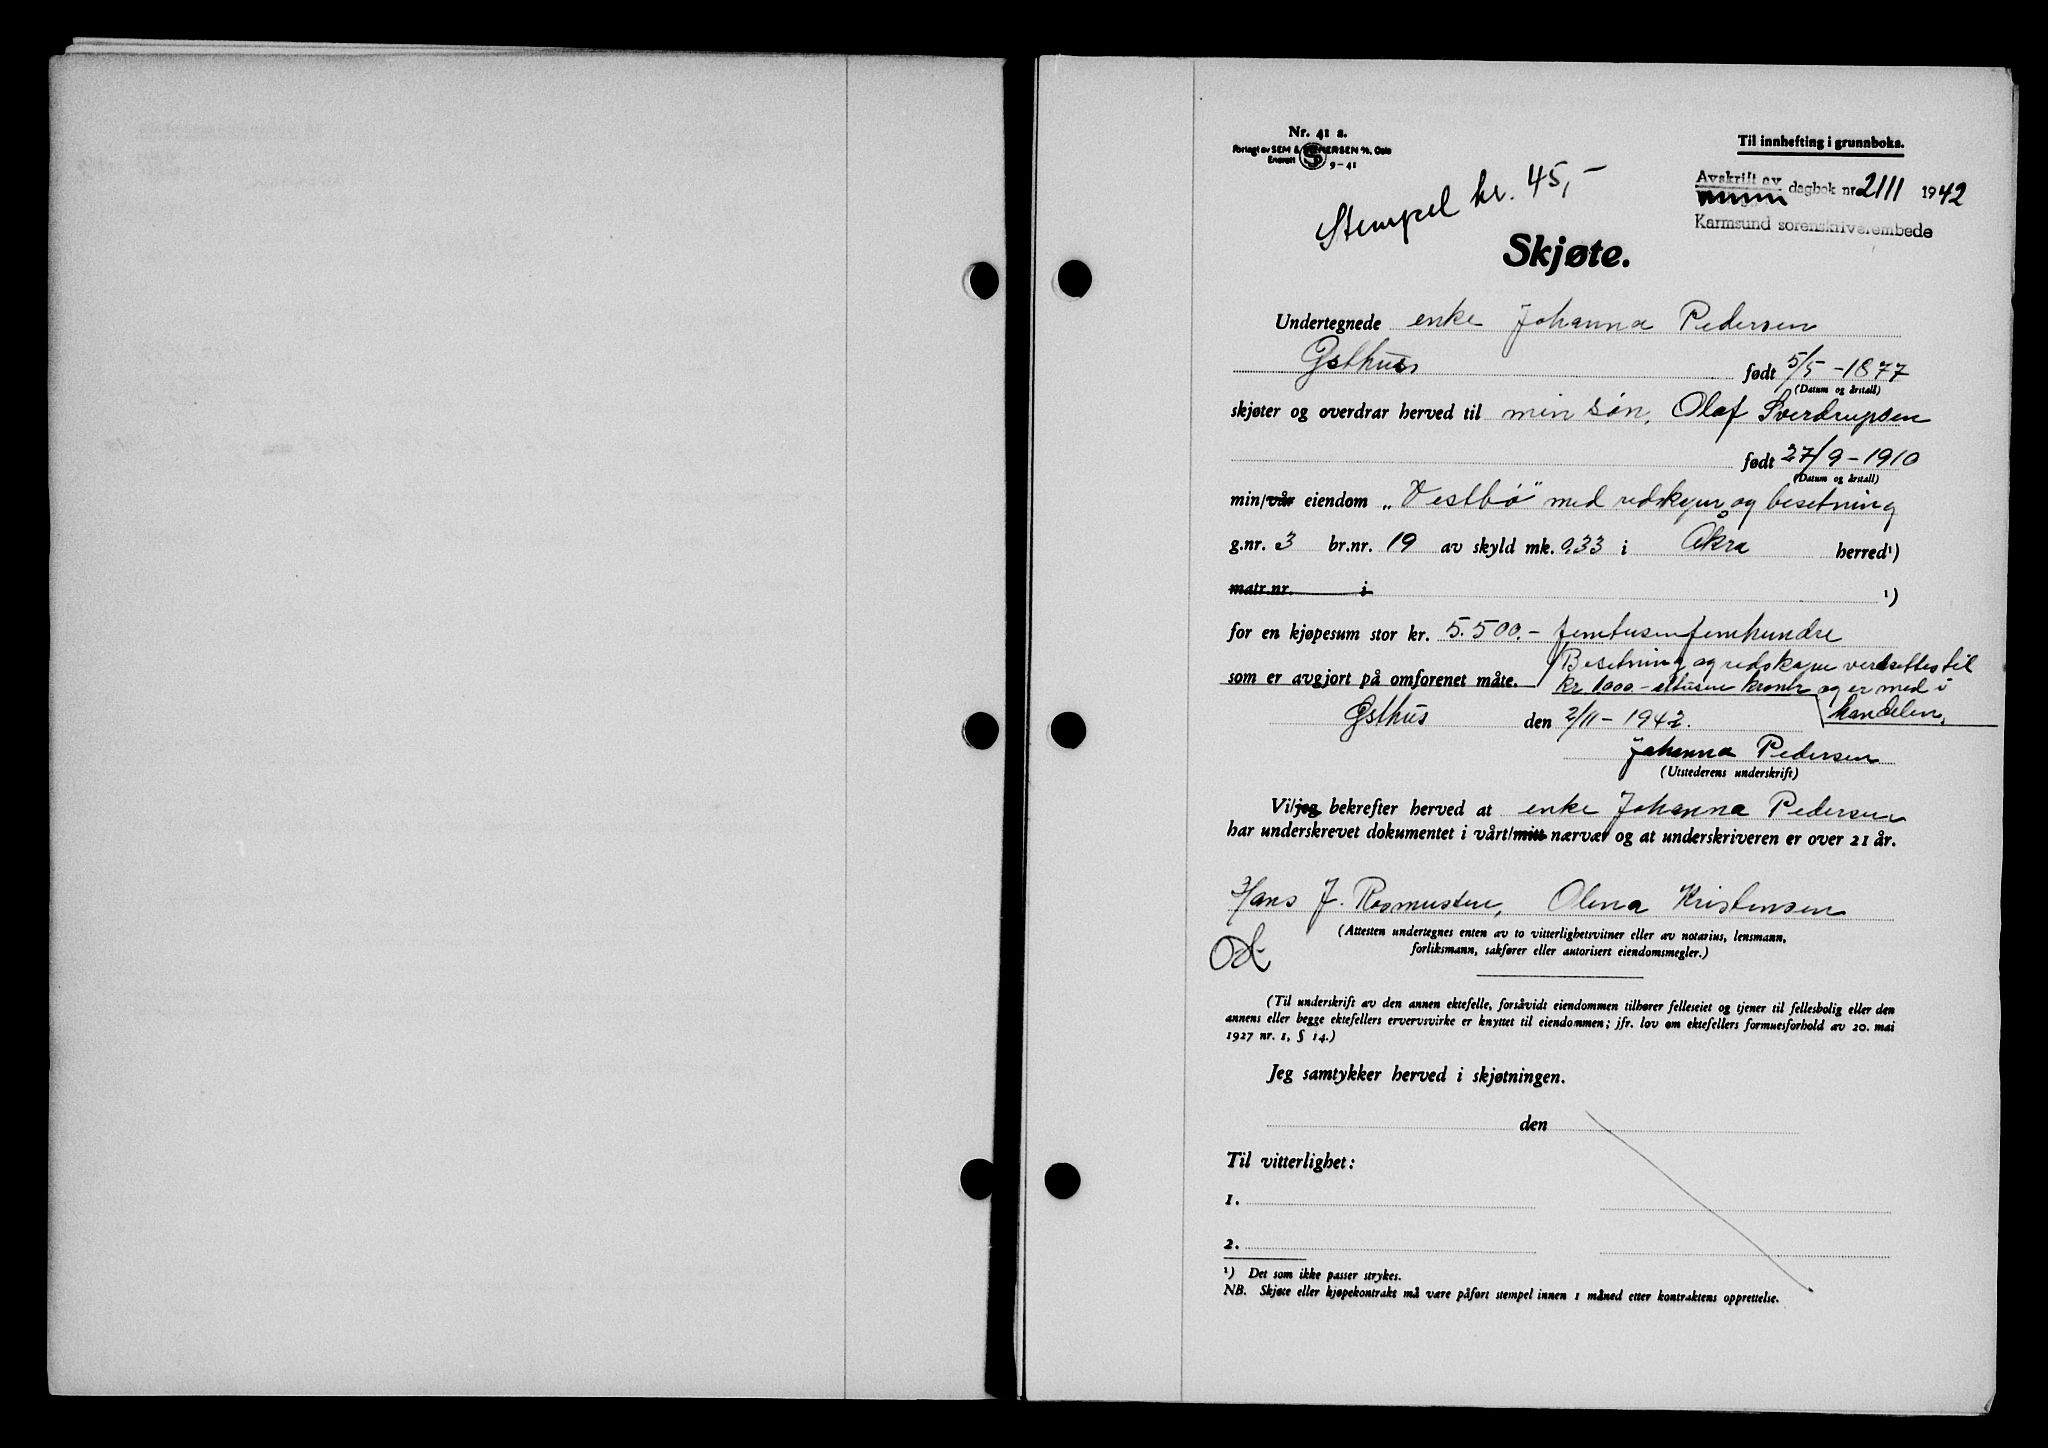 Nr. 41 a.
Forlagt av SEM & STENERSEN A/S, Oslo
Enerett 9-41
Til innhefting i grunnboka.
Stempel kr. 45,-
Avskrift av dagbok nr. 2111 1942
Karmsund sorenskriverembede
Skjøte.
Undertegnede enke Johanna Pedersen
Østhus født 5/5-1877
(Datum og årstall)
skjøter og overdrar herved til min søn, Olaf Sverdrupsen
født 27/9-1910
(Datum og årstall)
min/vår eiendom „Vestbö" med redskaper og besetning
g.nr. 3 br.nr. 19 av skyld mk. 0.33 i Åkra herred¹)
matr.nr. i ¹)
for en kjøpesum stor kr. 5.500.- femtusenfemhundre
som er avgjort på omforenet måte. Besetning og redskape verdsettes til
kr 1.000.- ettusen kroner og er med i
handelen.
Østhus den 2/11-1942.
Johanna Pedersen
(Utstederens underskrift)
Vi/jeg bekrefter herved at enke Johanna Pedersen
har underskrevet dokumentet i vårt/mitt nærvær og at underskriveren er over 21 år.
Hans J. Rasmussen, Olena Kristensen
(Attesten undertegnes enten av to vitterlighetsvitner eller av notarius, lensmann,
forliksmann, sakfører eller autorisert eiendomsmegler.)
(Til underskrift av den annen ektefelle, forsåvidt eiendommen tilhører felleseiet og tjener til fellesbolig eller den
annens eller begge ektefellers ervervsvirke er knyttet til eiendommen; jfr. lov om ektefellers formuesforhold av 20. mai
1927 nr. 1, § 14.)
Jeg samtykker herved i skjøtningen.
den
Til vitterlighet:
1.
2.
¹) Det som ikke passer strykes.
NB. Skjøte eller kjøpekontrakt må være påført stempel innen 1 måned etter kontraktens opprettelse.